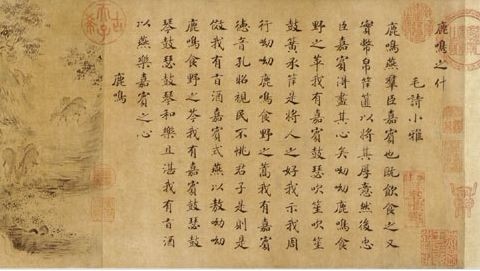 鹿鳴之什
毛詩小雅
鹿鳴燕羣臣嘉賓也既飲食之又
實幣帛筐篚以將其厚意然後忠
臣嘉賓得盡其心矣呦呦鹿鳴食
野之苹我有嘉賓鼓瑟吹笙吹笙
鼓簧承筐是將人之好我示我周
行呦呦鹿鳴食野之蒿我有嘉賓
德音孔昭視民不恌君子是則是
傚我有旨酒嘉賓式燕以敖呦呦
鹿鳴食野之芩我有嘉賓鼓瑟鼓
琴鼓瑟鼓琴和樂且湛我有旨酒
以燕樂嘉賓之心
鹿鳴